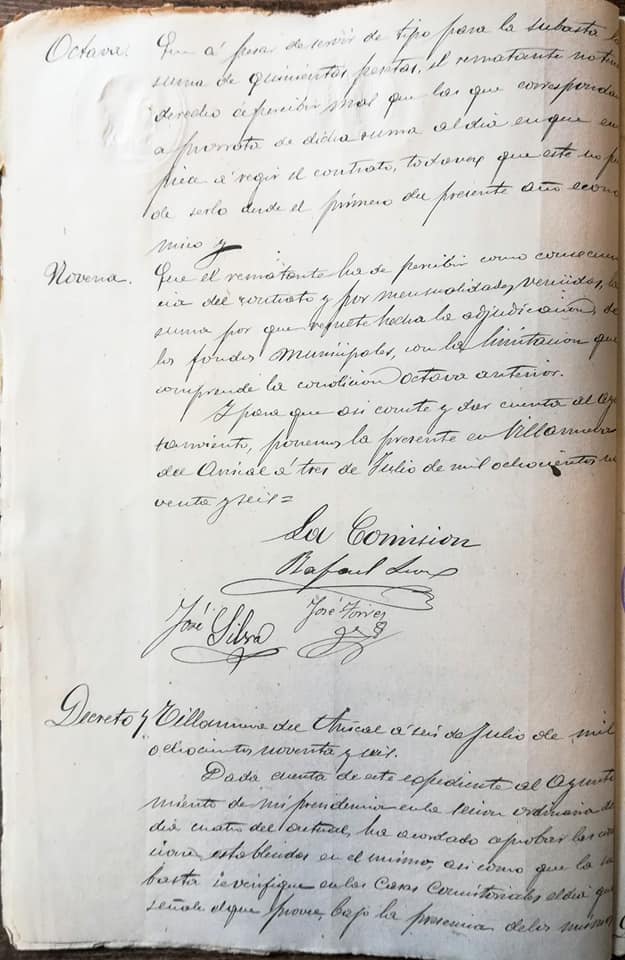 Octava. Que á pesar de servir de tipo para la subasta la
suma de quinientas pesetas, el rematante no tiene
derecho á percibir mas que las que correspondan
a prorrata de dicha suma al dia en que em
piece á regir el contrato, toda vez que este no pue
de serlo desde el primero del presente año econo
mico y
Novena. Que el rematante ha de percibir como consecuen
cia del contrato y por mensualidades vencidas, la
suma por que resulte hecha la adjudicacion, de
los fondos municipales, con la limitacion que
comprende la condicion octava anterior.
Y para que asi conste y dar cuenta al Ayun
tamiento, ponemos la presente en Villanueva
del Ariscal á tres de Julio de mil ochocientos no
venta y seis=
La Comision
Rafael
José Silva José Torres
Decreto y Villanueva del Ariscal á seis de Julio de mil
ochocientos noventa y seis.
Dada cuenta de este expediente al Ayunta
miento de mi presidencia en la sesion ordinaria del
dia cuatro del actual, ha acordado aprobar las con
diciones establecidas en el mismo, asi como que la su
basta se verifique en las Casas Consistoriales el dia que
señale el que provee, bajo la presencia de los mismos